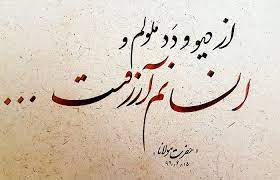 از دیو و دد ملولم و
انسانم آرزوست ...
«حضرت مولانا»